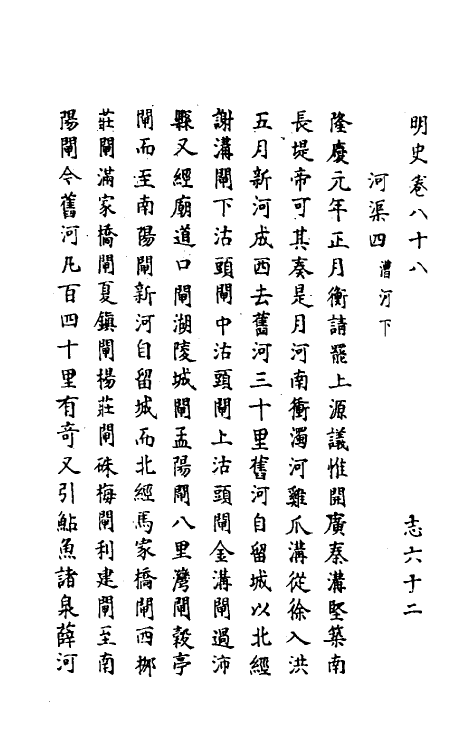 明史卷八十八　　志六十二
河渠四 漕河下
隆慶元年正月衡請罷上源議惟開廣秦溝堅築南
長堤帝可其奏是月河南衝濁河雞爪溝從徐入洪
五月新河成西去舊河三十里舊河自留城以北經
謝溝閘下沽頭閘中沽頭閘上沽頭閘金溝閘過沛
縣又經廟道口閘湖陵城閘孟陽閘八里灣閘穀亭
閘而至南陽閘新河自留城而北經馬家橋閘西栁
莊閘滿家橋閘夏鎮閘楊莊閘硃梅閘利建閘至南
陽閘令舊河凡百四十里有奇又引鮎魚諸泉薛河